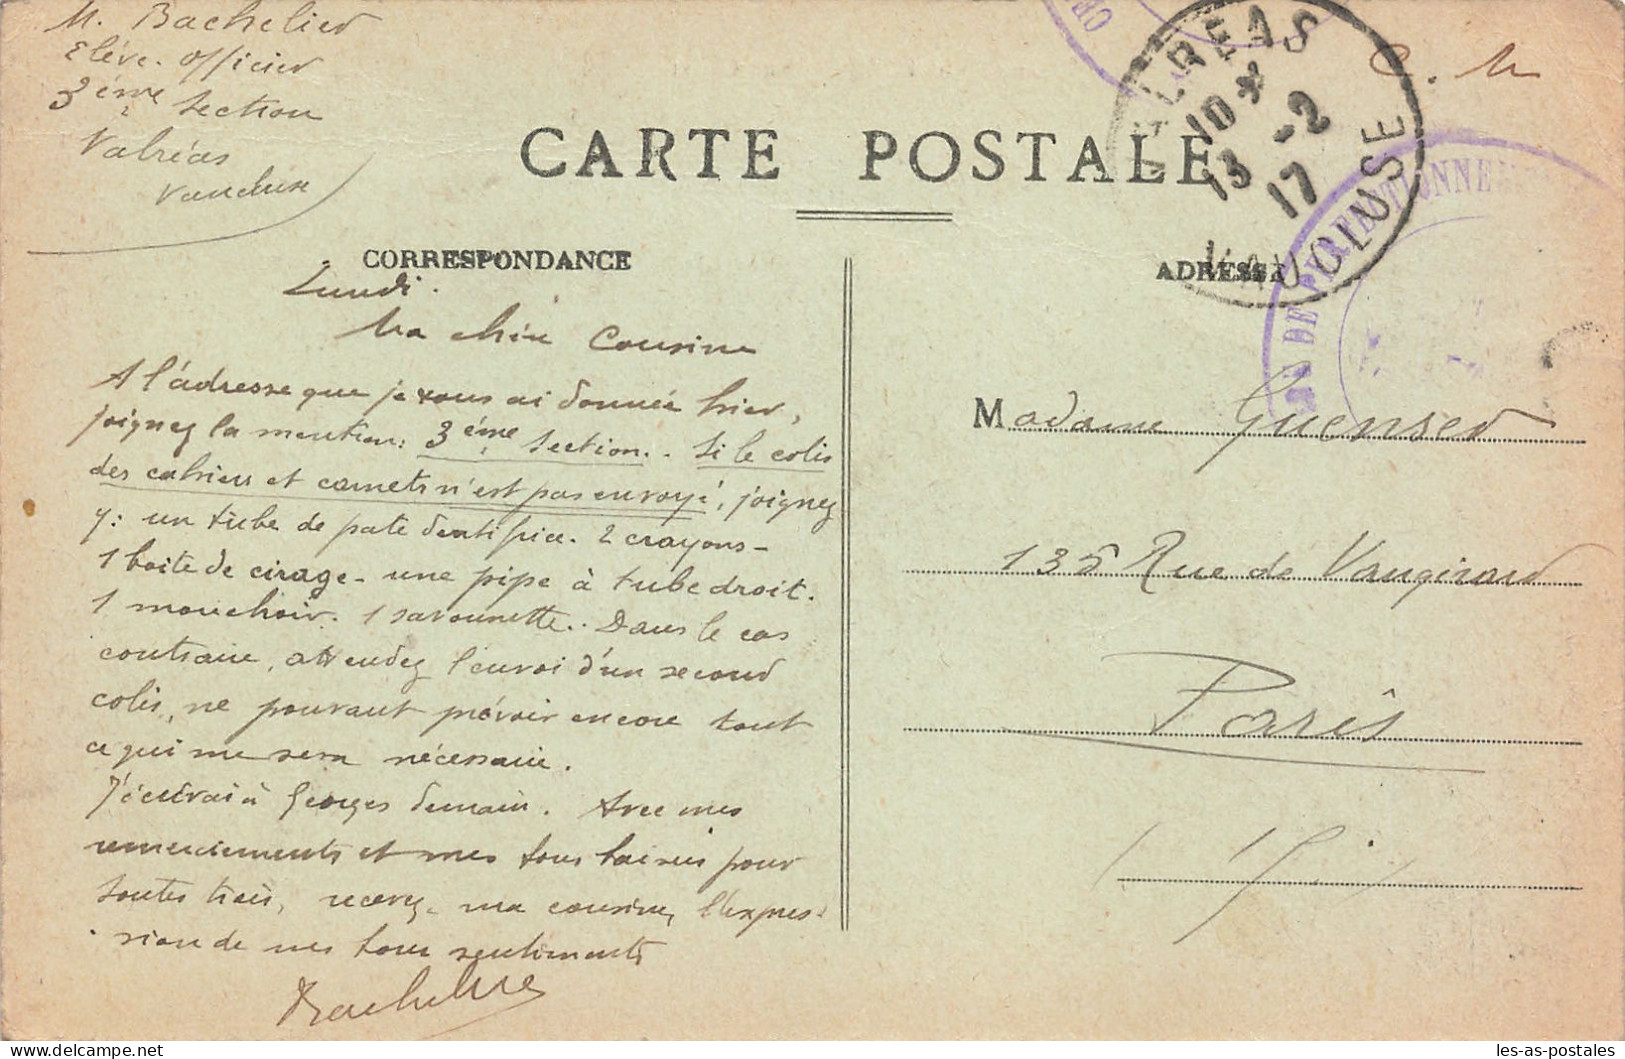 M. Bachelier
Elève. Officier
3ème Section
Valréas
Vaucluse
C. M
VALREAS
10 *
13 -2
17
VAUCLUSE
DE PERFECTIONNEM
CARTE POSTALE
CORRESPONDANCE
Lundi.
Ma chère Cousine
A l'adresse que je vous ai donnée hier,
joignez la mention: 3ème Section. . Si le colis
des cahiers et carnets n'est pas envoyé, joignez
y: un tube de pate dentifrice. 2 crayons -
1 boite de cirage - une pipe à tube droit.
1 mouchoir. 1 savonnette.. Dans le cas
contraire, attendez l'envoi d'un second
colis, ne pouvant prévoir encore tout
ce qui me sera nécessaire.
J'écrirai à Georges demain. Avec mes
remerciements et mes bons baisers pour
toutes trois, recevez, ma cousine, l'expres-
sion de mes bons sentiments
Bachelier
ADRESSE
Madame Guenser
135 Rue de Vaugirard
Paris
les-as-postales